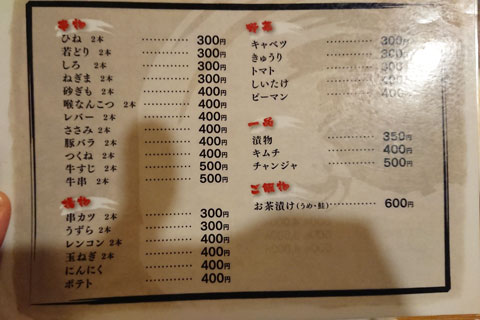 串物
ひね 2本 300円
若どり 2本 300円
しろ 2本 300円
ねぎま 2本 400円
砂ぎも 2本 400円
喉なんこつ 2本 400円
レバー 2本 400円
ささみ 2本 400円
豚バラ 2本 400円
つくね 2本 400円
牛すじ 2本 500円
牛串 2本 500円
揚物
串カツ 2本 300円
うずら 2本 300円
レンコン 2本 400円
玉ねぎ 2本 400円
にんにく 400円
ポテト 400円
野菜
キャベツ 300円
きゅうり 300円
トマト
しいたけ
ピーマン
一品
漬物 350円
キムチ 400円
チャンジャ 500円
ご飯物
お茶漬け(うめ・鮭) 600円